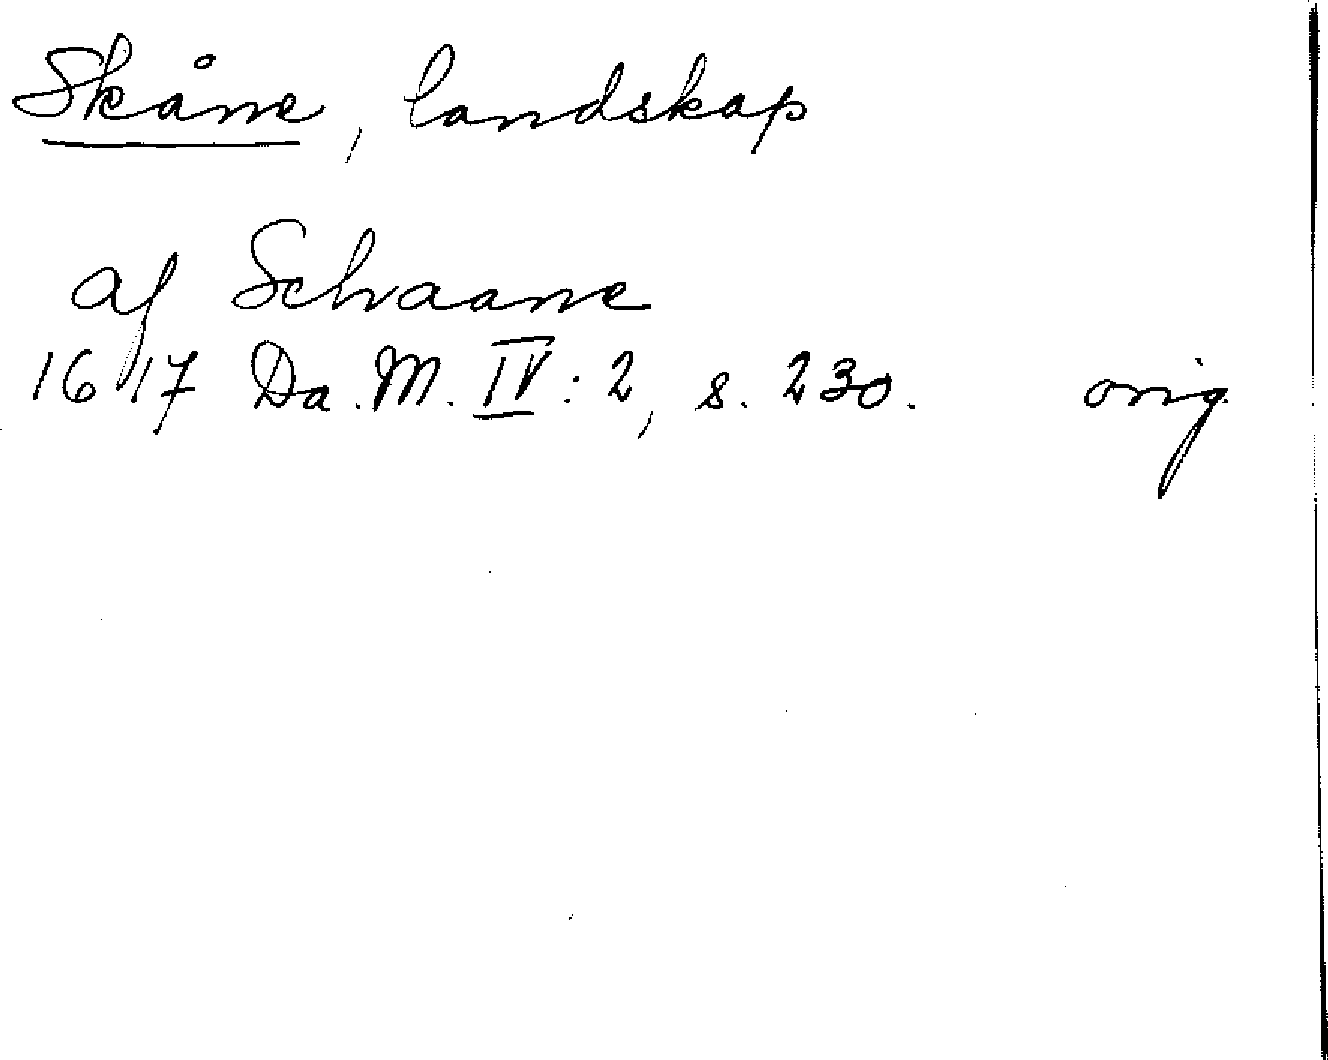 Skåne, landskap
af Schaane
1617 Da. M. IV: 2, s. 230. orig.